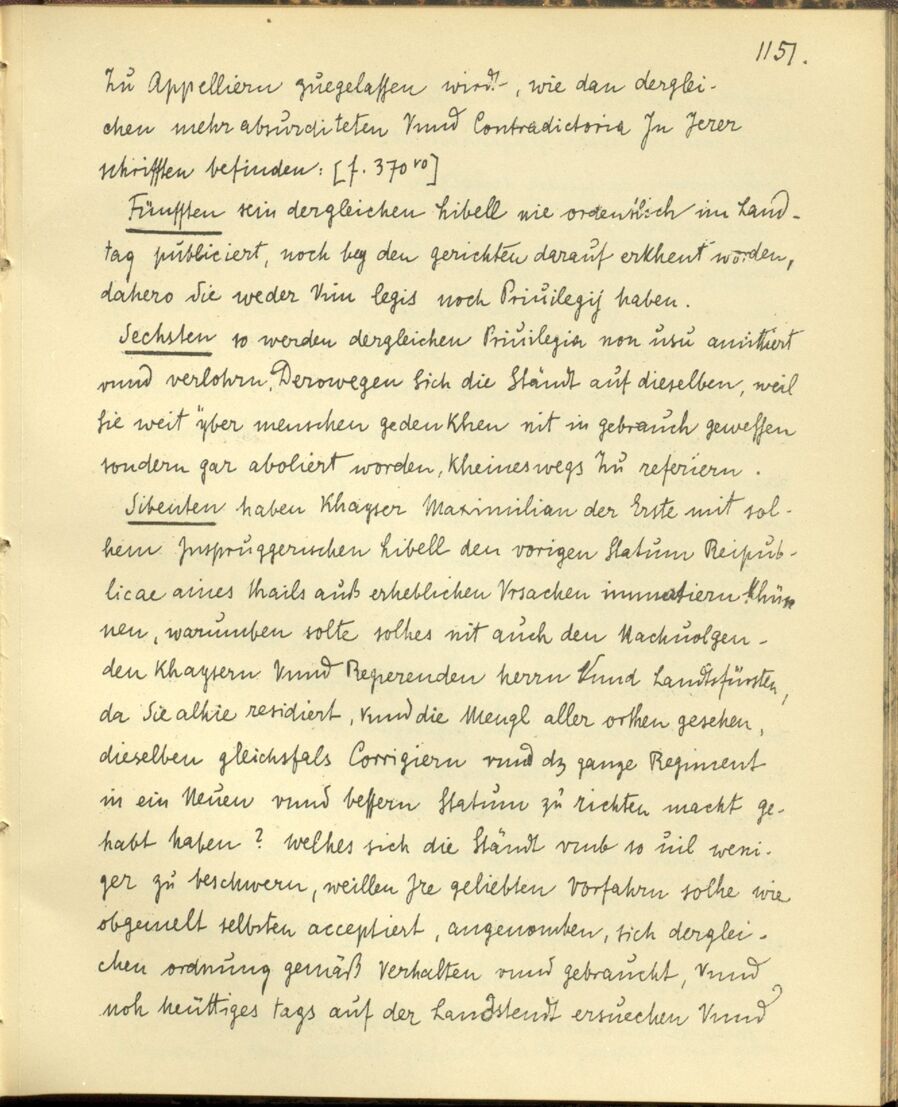 1151.
Zu Appelliern zuegelassen wirdt, wie dan derglei-
chen mehr absurditeten Vnnd Contradictoria In Jerer
schrifften befinden: [f. 370 vo]
Fünfften sein dergleichen Libell nie ordentlich im Land-
tag publiciert, noch bey den gerichten darauf erkhent worden,
dahero Sie weder Vim legis noch Priuilegij haben.
Sechsten so werden dergleichen Priuilegia non usu amittiert
vnnd verlohrn, Derowegen Sich die Ständt auf dieselben, weil
Sie weit yber menschen gedenkhen nit in gebrauch gewessen
sondern gar aboliert worden, kheineswegs Zu referiern.
Sibenten haben Khayser Maximilian der Erste mit sol-
hem Jnspruggerischen Libell den vorigen Statum Reipub-
licae aines thails auß erheblichen Vrsachen immutiern Khün
nen, warumben solte solhes nit auch den Nachuolgen-
den Khaysern Vnnd Regerenden herrn Vnnd Landtsfürsten,
da Sie alhie residiert, vnnd die Mengl aller orthen gesehen,
dieselben gleichsfals Corrigiern vnnd dz ganze Regiment
in ein Neuen vnnd bessern Statum zu richten macht ge-
habt haben? welhes sich die Ständt vmb so uil weni-
ger zu beschwern, weillen Jre geliebten Vorfahrn solhe wie
obgemelt selbsten acceptiert, angenomben, sich derglei-
chen ordnung gemäß Verhalten vnnd gebraucht, Vnnd
noh heüttiges tags auf der Landstendt ersuechen Vnnd